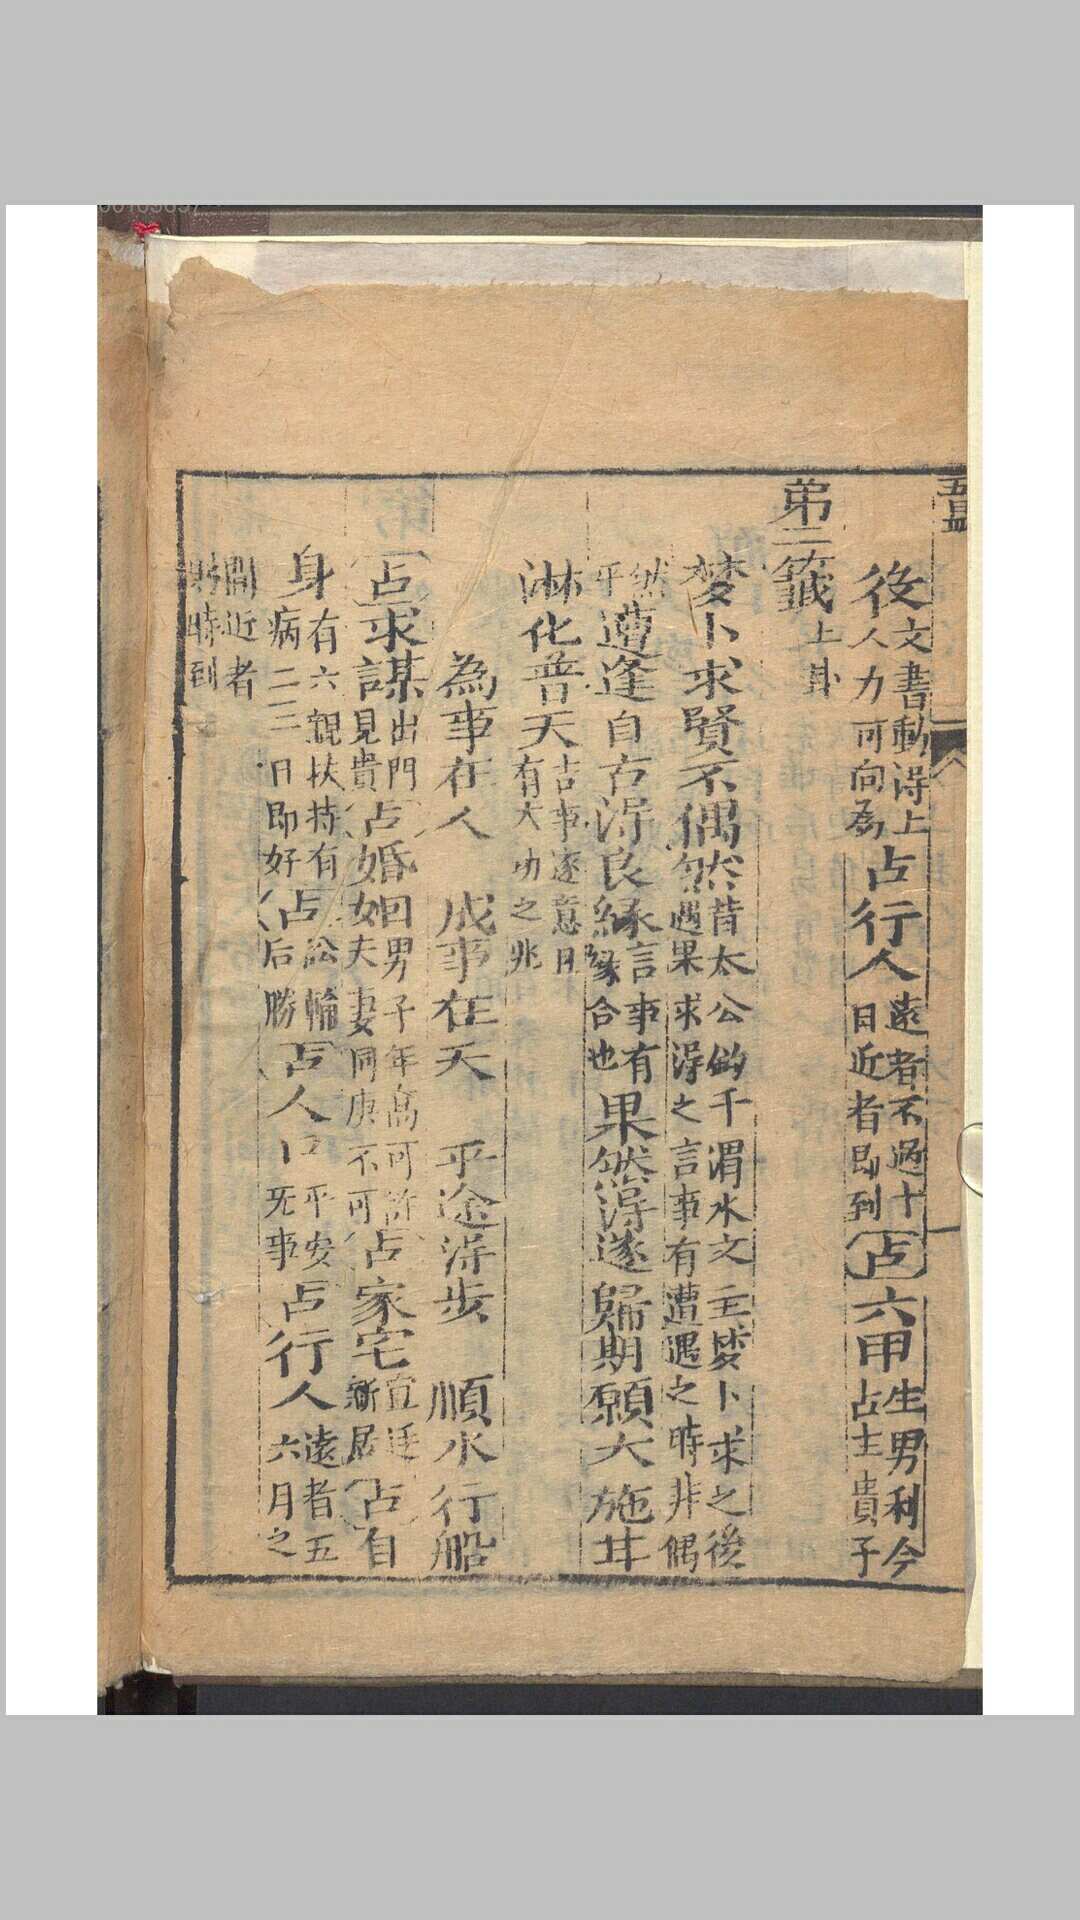 役文書動得上人力可向為占行人遠者不過十日近者即到占六甲生男利今占主貴子
第二籤上卦
夢卜求賢不偶然昔太公釣于渭水文王夢卜求之後遇果求得之言事有遭遇之時非偶
然乎遭逢自古得良緣言事有緣合也果然得遂歸期願大施甘
淋化普天吉事逐意日有大功之兆
為事在人　成事在天　平途得步　順水行船
占求謀出門見貴占婚如回男子年高可許夫妻同庚不可占家宅宜迁新居占自
身有六親扶持有病二三日即好占訟輪后勝占人口平安旡事占行人遠者五六月之
間近者時到